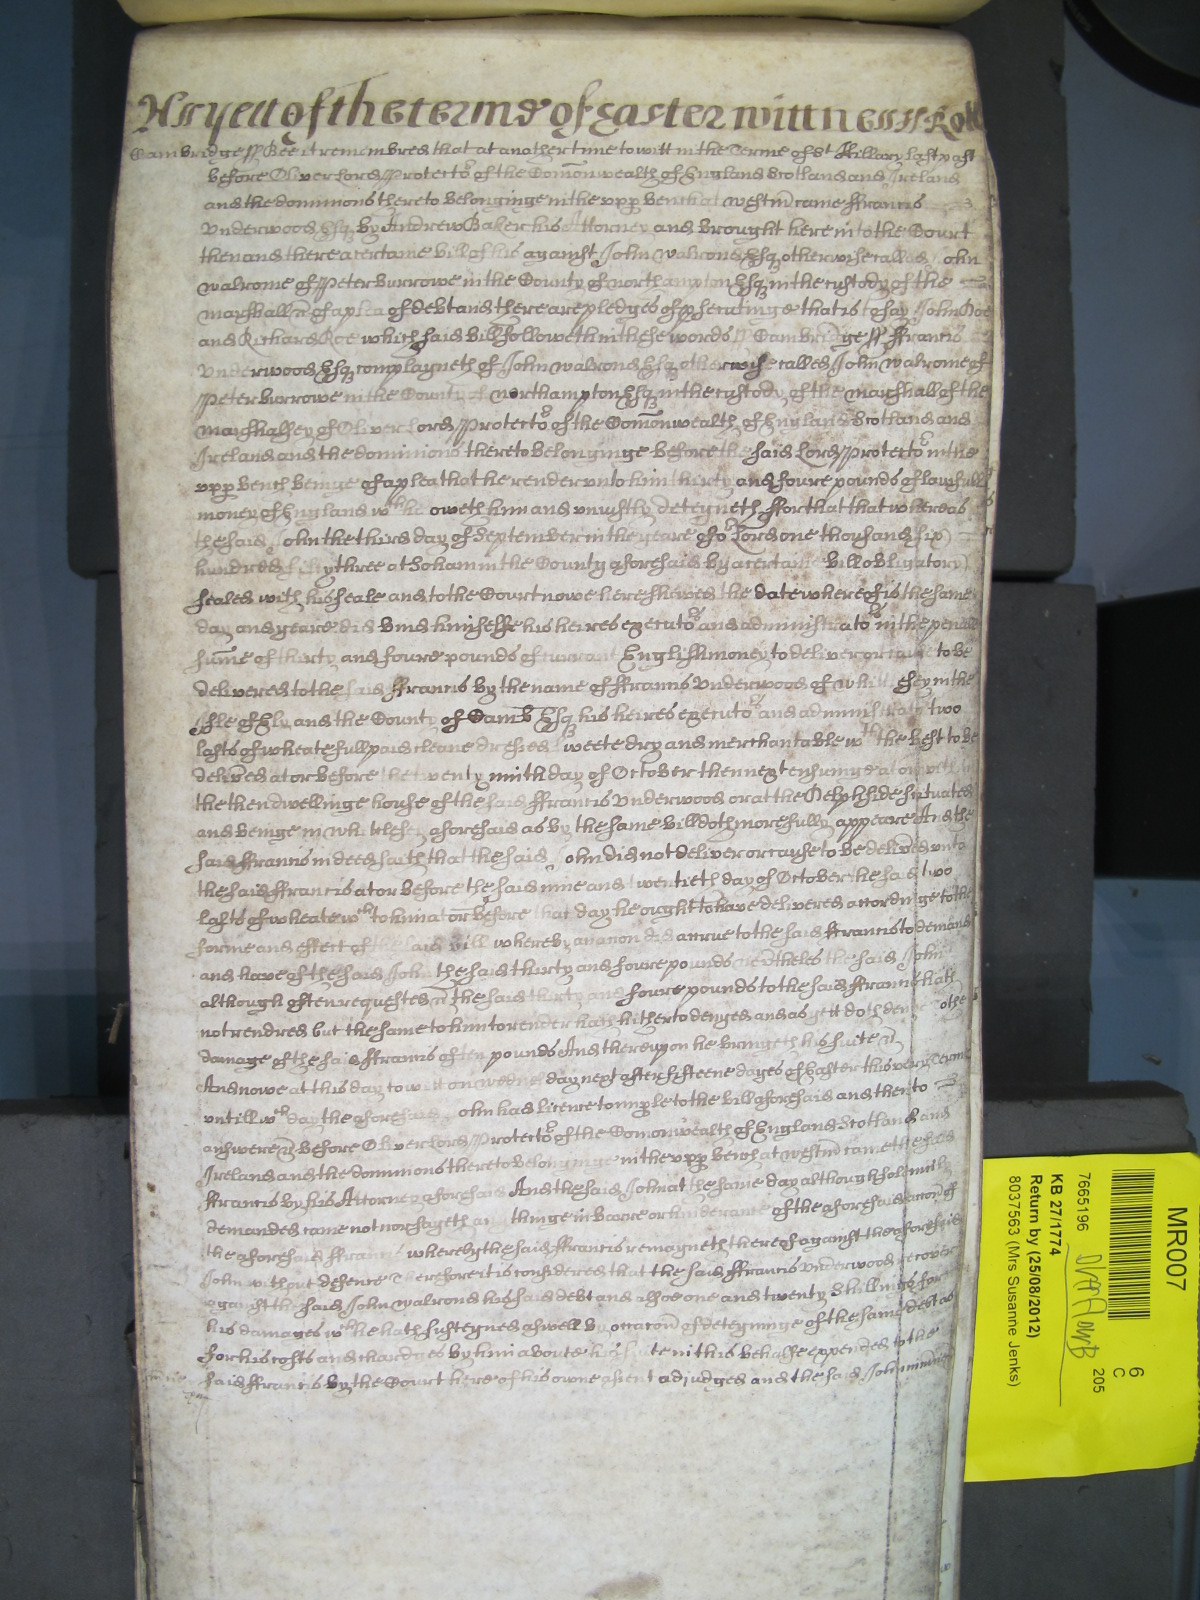 As yett of the terme of Easter wittnes H: Rolle
Cambridge ss Bee it remembred that at another time to witt in the Terme of St Hillary last past
before Oliver Lord Protector of the Comonwealth of England Scotland and Ireland
and the dominions thereto belonginge in the upp bench at westm came ffrancis
Underwood Esq by Andrew Baker his Attorney and brought here into the Court
then and there a certaine bill of his against John walrond Esq otherwise called John
walrome of Peterburrowe in the County of northampton Esq in the custody of the
marshall &c of a plea of debt and there are pledges of psecutinge that is to say John Doe
and Richard Roe which said bill followeth in these words ss Cambridge ss ffrancis
Underwood Esq complayneth of John walrond Esq otherwise called John walrome of
Peterburrowe in the County of northampton Esq in the custody of the marshall of the
marshalsey of Oliver Lord Protector of the Comonwealth of England Scotland and
Ireland and the dominions thereto belonginge before the said Lord Protector in the
upp bench beinge of a plea that he render unto him thirty and foure pounds of lawfull
money of England wch he oweth him and uniustly deteyneth ffor that that whereas
the said John the third day of September in the yeare of or Lord one thousand six
hundred fifty three at Soham in the County aforesaid by a certaine bill obligatory
sealed with his seale and to the Court nowe here shewed the date whereof is the same
day and yeare did bind himselfe his heires executors and administrators in the penall
sume of thirty and foure pounds of currant English money to deliver or cause to be
delivered to the said ffrancis by the name of ffrancis Underwood of whittlesey in the
Isle of Ely and the County of Camb Esq his heires executors and administrators two
lasts of wheate fully paid cleane dressed sweete dry and merchantable wth the best to be
delived at or before the twenty ninth day of October then next ensuinge at or within
the then dwellinge house of the said ffrancis Underwood or at the Delph side situated
and beinge in whittlesey aforesaid as by the same bill doth more fully appeare And the
said ffrancis in deed saith that the said John did not deliver or cause to be delived unto
the said ffrancis at or before the said nine and twentieth day of October the said two
lasts of wheate wch to him at or before that day he ought to have delivered accordinge to the
forme and effect of the said bill whereby an accon did accrue to the said ffrancis to demand
and have of the said John the said thirty and foure pounds nevtheles the said John
although often requested &c the said thirty and foure pounds to the said ffrancis hath
not rendred but the same to him to render hath hitherto denyed and as yett doth deny to the
damage of the said ffrancis of ten pounds And thereupon he bringeth his suite &c
And nowe at this day to witt on wednesday next after fifteene dayes of Easter this very Terme
untill wch day the aforesaid John had licence to imple to the bill aforesaid and then to
answere &c before Oliver Lord Protector of the Comonwealth of England Scotland and
Ireland and the dominions thereto belonginge in the upp bench at westm came the said
ffrancis by his Attorney aforesaid And the said John at the same day although solemnly
demanded came not nor sayeth any thinge in barre or hinderance of the aforesaid accon of
the aforesaid ffrancis whereby the said ffrancis remayneth thereof against the aforesaid
John without defence Therefore it is considered that the said ffrancis Underwood recover
against the said John walrond his said debt and alsoe one and twenty shillings for
his damages wch he hath susteyned aswell by occacon of deteyninge of the same debt as
for his costs and chardges by him about his suite in this behalfe expended to the
said ffrancis by the Court here of his owne assent adiudged and the said John in mercy
MR007
7665196
KB 27/1774
Return by (25/08/2012)
8037563 (Mrs Susanne Jenks)
6
C
205